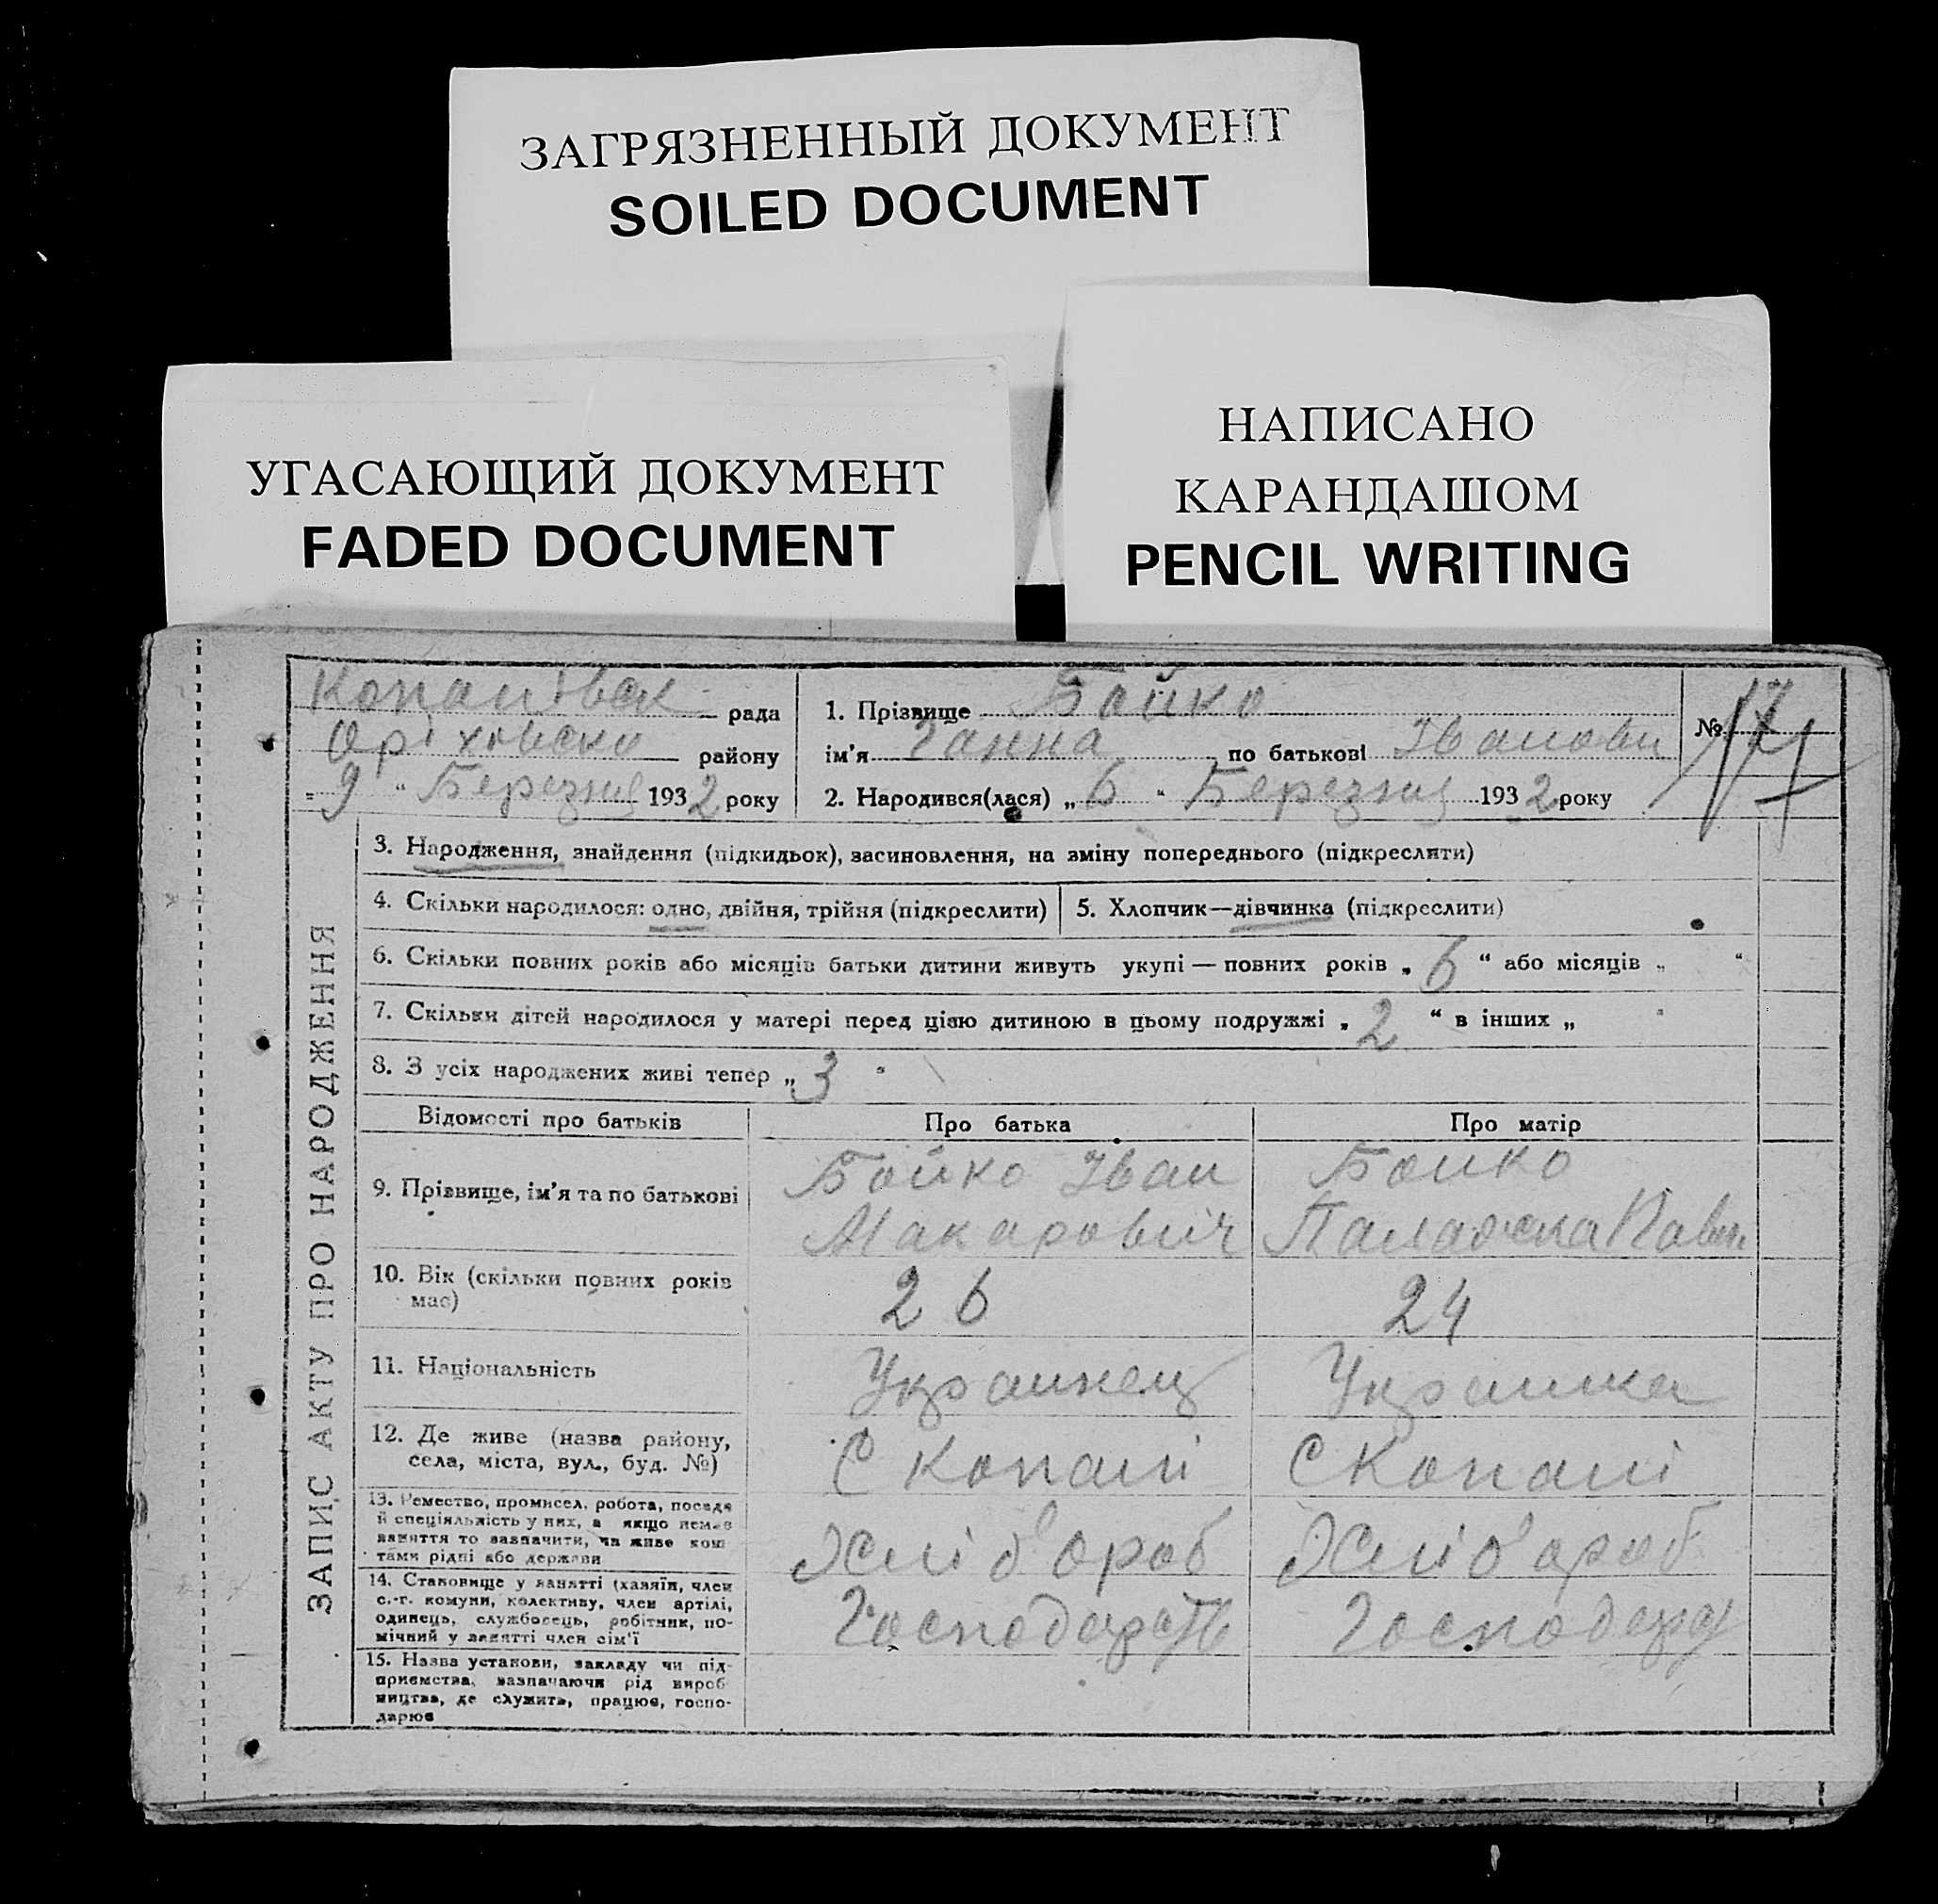 ЗАГРЯЗНЕННЫЙ ДОКУМЕНТ
SOILED DOCUMENT
УГАСАЮЩИЙ ДОКУМЕНТ
FADED DOCUMENT
НАПИСАНО
КАРАНДАШОМ
PENCIL WRITING
Копанівск рада
Оріховско району
„ 9 “ Березня 1932 року
1. Прізвище Бойко
ім'я Ганна по батькові Іванови
2. Народився(лася) „ 6 “ Березня 1932 року
№ 17
ЗАПИС АКТУ ПРО НАРОДЖЕННЯ
3. Народження, знайдення (підкидьок), засиновлення, на зміну попереднього (підкреслити)
4. Скільки народилося: одно, двійня, трійня (підкреслити)
5. Хлопчик—дівчинка (підкреслити)
6. Скільки повних років або місяців батьки дитини живуть укупі — повних років „ 6 “ або місяців „ “
7. Скільки дітей народилося у матері перед цією дитиною в цьому подружжі „ 2 “ в інших „ “
8. З усіх народжених живі тепер „ 3 “
Відомості про батьків
Про батька
Про матір
9. Прізвище, ім'я та по батькові
Бойко Іван
Макарович
Бойко
Палажка Павл
10. Вік (скільки повних років
має)
26
24
11. Національність
Украинец
Украинка
12. Де живе (назва району,
села, міста, вул., буд. №)
С Копані
С Копані
13. Ремество, промисел, робота, посада
й спеціяльність у них, а якщо немає
заняття то зазначити, чи живе кош
тами рідні або держави
Хліб'ороб
Хліб'ороб
14. Становище у занятті (хазяїн, член
с.-г. комуни, колективу, член артілі,
одинець, службовець, робітник, по-
мічний у занятті член сім'ї
Господарств
Господар
15. Назва установи, закладу чи під-
приємства, зазначаючи рід вироб-
ництва, де служить, працює, госпо-
дарює